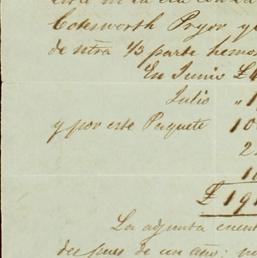 Cotesworth Pryor y
de ntra 1/3 parte hemos
En Junio £
Julio "
y por este Paquete 10
£ 191
La adjunta cuenta
despues de un año: p